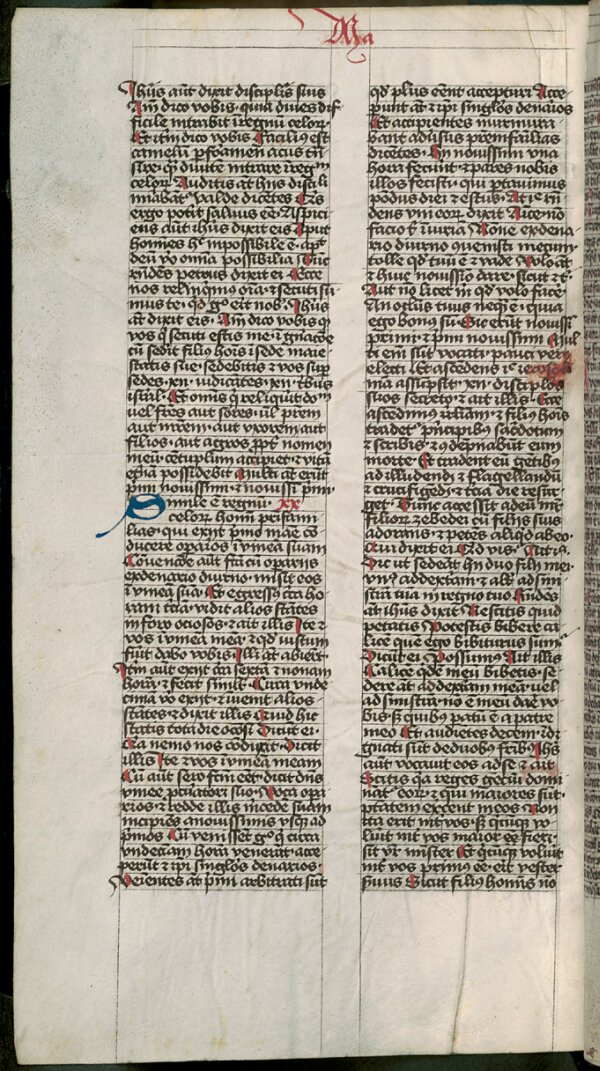 Ma
Ihūs aūt dixit discipĺis suis
Am̄ dico vobis quia diues dif
ficile intrabit ī regnū celoꝝ
Et itm̄ dico vobis Facilius est
camelū ꝑ foramen acus tn̄
sire qͣ diuitē intrare ī regm̄
celoꝝ Auditis at̄ hijs discıĺi
mirabāt valde dicētes Qͥs
ergo potit saluus eē Aspici
ens aūt ihūs dixit eis Aput
homīes hͦ impossibile ē apͭ
deū vͦ omnia possibilia Tūc
rn̄dēs petrus dixit ei Ecce
nos relinqͥmus oīa et secuti su
mus te qͥd gͦ eit nob Ihūs
at̄ dixit eis Am̄ dico vobis qͥ
vos qͥ secuti estis me ī gn̄acōe
cū sedit filiꝰ hoīs ī sede maie
statis sue sedebitis et vos sup
sedes xij iudicātes xij tbus
isrl Et omīs qͥ reliquit dom̄
uel fres aut sores uł prem
aut mrem aut vxorem aut
filios aut agros ꝓpt nomen
meū cētuplum accipiet et vitā
et̄nā possidebit Multi at̄ erūt
pͥmi nouissimi et nouissīi pͥmi
Simile ē regnū xx
celoꝝ homī prifami
lias qui exijt pͥmo mae cō
ducere opaīos ī vineā suam
Cōuencōe aūt fcā cū opaijs
ex denario diurno misit eos
ī vineā suā Et egressꝰ cͥca ho
ram tciā vidit alios stātes
in foro ociosos et ait illis Ite et
vos ī vineā meā et qͥd iustum
fūit dabo vobis Illi at̄ abierūt
Itm̄ aut exijt cͥca sextā et nonam
horā et fecit simiĺr Circa vnde
cimā vͦ exijt et īuenit alios
stātes et dixit illis Quid hic
statis tota die ocōsi Dicūt ei
Qͥa nemo nos cōduxit Dicit
illis Ite et vos ī vineā meam
Cū aūt sero fcm̄ eēt dicit dn̄s
vinee ꝓcuratori suo Voca opa
rios et redde illis mcedē suam
incipiēs a nouissimis vsqꝫ ad
pͥmos Cū venissēt gͦ qͥ circa
vndeciam horā venerāt acce
perūt et ip̄i singĺos denarios
Veientes at̄ pͥmi arbitrati sūt
qd plus eēnt accepturi Acce
perunt at̄ et ip̄i singĺos denaīos
Et accipientes murmura
bant adūsus prem familias
dicētes Hij nouissimi vna
hora fecūnt et pares nobis
illos fecisti qui ptauimus
pondus diei et estus At ıͤ rn̄
dens vni eoꝝ dixit Aice nō
facio tͥ iuriā None ex dena
rio diurno quenisti mecum
tolle qd tuū ē et vade Volo at̄
et huic nouissiō dare sicut et tͥ
Aut nō licet m̄ qd volo facē
An oclus tuus neqͣ ē quia
ego bonus sū Sic erūt nouissi
primi et pͥmi nouissimi Mul
ti em̄ sūt vocati pauci vero
electi Et ascēdens ıͤ ierosoli
ma assūpsit xij discipĺos
suos secreto et ait illis Ecce
ascēdimꝰ irlīam et filius hoīs
tradet pͥncipibus sacdotum
et scribis et cōdepnabūt eum
morte Et tradent eū getibꝰ
ad illudendū et flagellandū
et crucifigēdū et tcia die resur
get Tunc accessit ad eū mr
filioꝝ zebedei cū filijs suis
adorans et petēs aliqͥd ab eo
Qui dixit ei Qͥd vis Aıt ıĺı
Dic ut sedeāt hij duo filij mei
vnꝰ ad dextā et altʳ ad sini
strā tuā in regno tuo Rn̄dēs
at̄ ihūs dixit Nescitis quid
petatis Potestis bibere ca
licē que ego bibiturus sum
Dicūt ei Possumꝰ Ait illis
Calicē qͥde meū bibetis se
dere at̄ ad dextam meā uel
ad sinistrā nō ē meū daē vo
bis sꝫ quibꝰ patū ē a patre
meo Et audietēs decem idīt
gnati sūt de duobꝰ fribꝰ Ihs
aūt vocauit eos ad se et ait
Scitis qa reges gētiū domi
nātʳ eoꝝ et qui maiores sūt
ptātem exͨcent in eos Non
ita erit intʳ vos sꝫ qͥcūqꝫ vo
luit intʳ vos maior eē fieri
sit vrʳ mister Et qͥcūqꝫ voluit
intʳ vos primꝰ eē eit vester
suus Sicut filiꝰ homīs nō